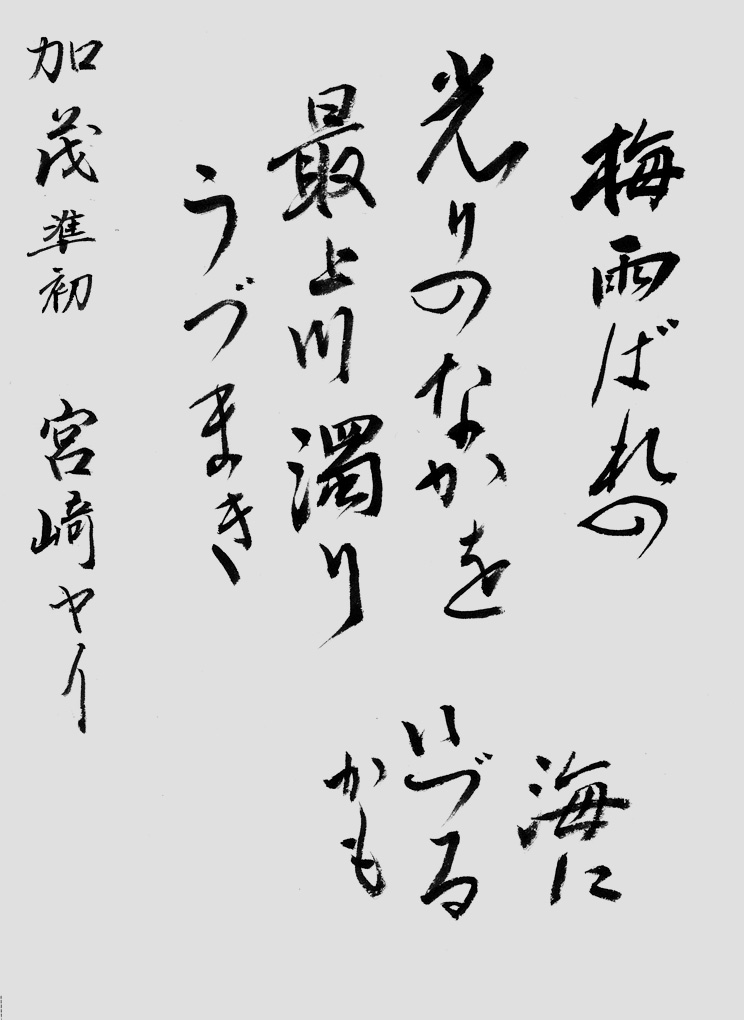 梅雨ばれの
光りのなかを
最上川濁り
うづまき
海に
いづる
かも
加茂 準初 宮崎ヤイ